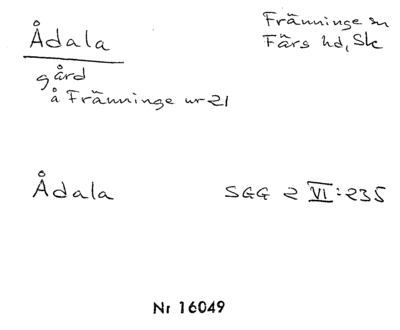 Ådala
Fränninge sn
Färs hd, Sk
gård
å Fränninge nr 21
Ådala
SGG 2 VI:235
Nr 16049